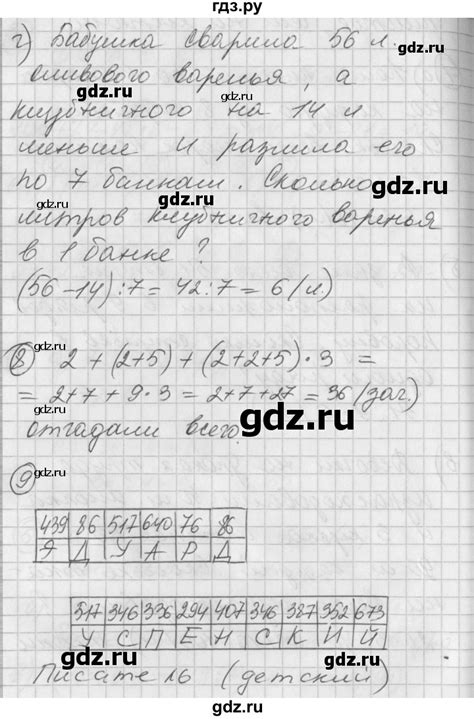 гдз.ру
г) Бабушка сварила 56 л.
сливового варенья, а
клубничного на 14 л
меньше и разлила его
по 7 банкам. Сколько
литров клубничного варенья
в 1 банке?
(56-14):7=42:7=6(л)
⑧ 2+(2+5)+(2+2+5)·3=
=2+7+9·3=2+7+27=36(заг.)
отгадали всего.
⑨
439 86 517 640 76 86
Э Д У А Р Д
517 346 336 294 407 346 387 352 673
У С П Е Н С К И Й
Писатель (детский)
gdz.ru
gdz.ru
gdz.ru
gdz.ru